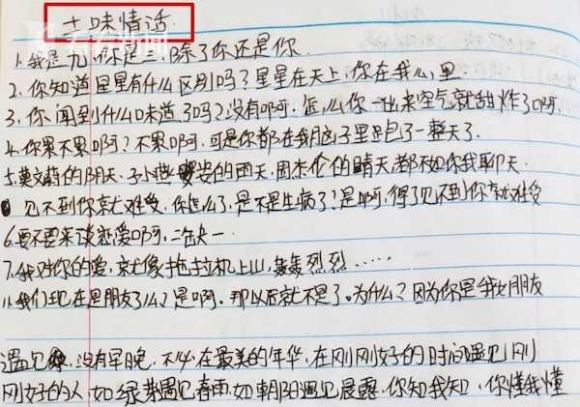 土味情话
1.我是九,你是三,除了你还是你
2.你知道星星有什么区别吗?星星在天上,你在我心里
3.你闻到什么味道了吗?没有啊.怎么你一出来空气就甜炸了啊.
4.你累不累啊?不累啊.可是你都在我脑子里跑了一整天了.
5.莫文蔚的阴天.孙燕姿的雨天.周杰伦的晴天,都不如你我聊天.
见不到你就难受.你怎么了,是不是生病了?是啊,得了见不到你就难受
6.要不要来谈恋爱啊,二缺一
7.我对你的爱,就像拖拉机上山,轰轰烈烈……
我们现在是朋友了么?是啊,那以后就不是了。为什么?因为你是我女朋友
遇见 没有早晚,不必在最美的年华,在刚刚好的时间遇见刚
刚好的人,如绿芽遇见春雨,如朝阳遇见晨露,你知我知,你懂我懂